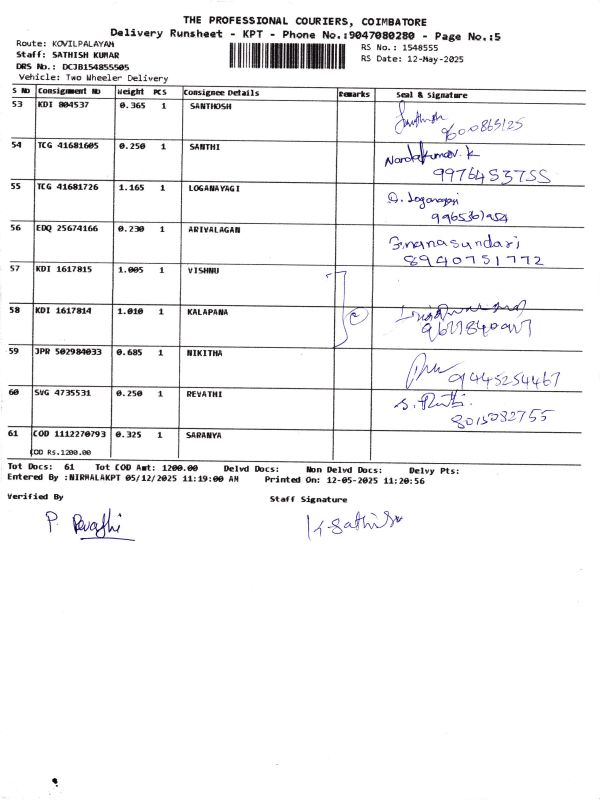 THE PROFESSIONAL COURIERS, COIMBATORE
Delivery Runsheet - KPT - Phone No.:9047080280 - Page No.:5
Route: KOVILPALAYAM
Staff: SATHISH KUMAR
DRS No.: DCJB154855505
Vehicle: Two Wheeler Delivery
RS No.: 1548555
RS Date: 12-May-2025
S No Consignment No Weight PCS Consignee Details Remarks Seal & Signature
53 KDI 804537 0.365 1 SANTHOSH
54 TCG 41681605 0.250 1 SANTHI Nandakumar.K
9976453755
55 TCG 41681726 1.165 1 LOGANAYAGI
56 EDQ 25674166 0.230 1 ARIVALAGAN Gnanasundari
8940751772
57 KDI 1617815 1.005 1 VISHNU
58 KDI 1617814 1.010 1 KALAPANA
59 JPR 502984033 0.685 1 NIKITHA
9445254467
60 SVG 4735531 0.250 1 REVATHI
8015082755
61 COD 1112270793 0.325 1 SARANYA
COD RS.1200.00
Tot Docs: 61 Tot COD Amt: 1200.00 Delvd Docs: Non Delvd Docs: Delvy Pts:
Entered By :NIRMALAKPT 05/12/2025 11:19:00 AM Printed On: 12-05-2025 11:20:56
Verified By Staff Signature
P. Revathi